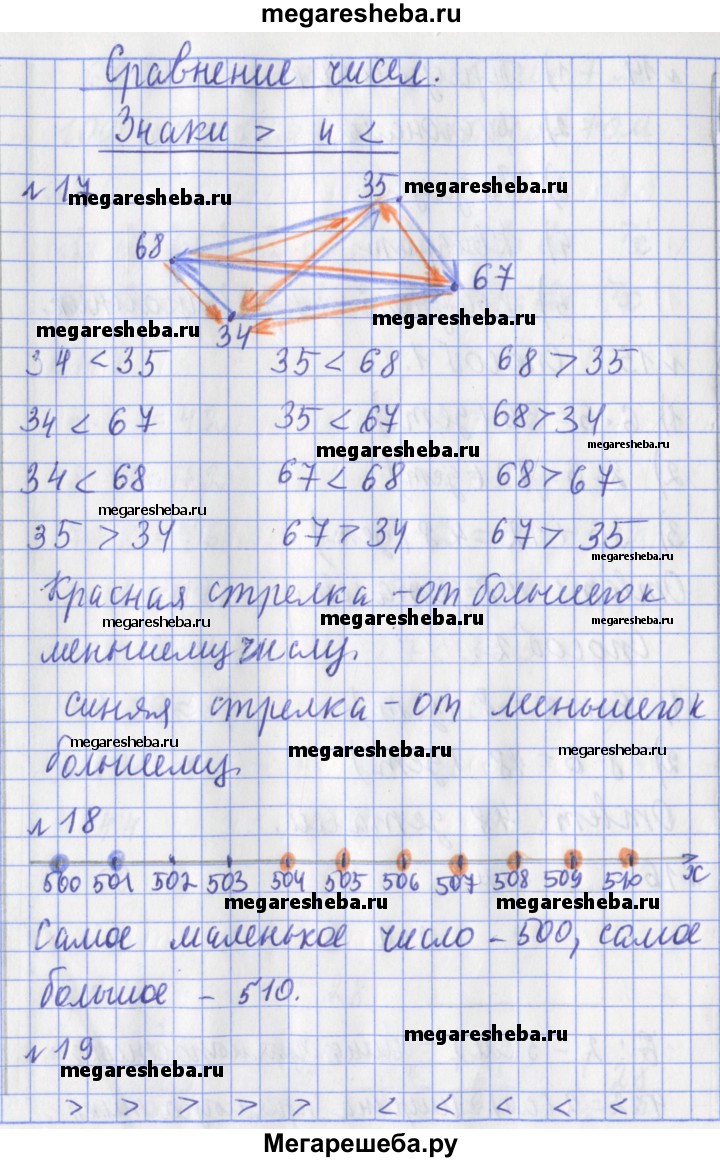 megaresheba.ru
Сравнение чисел.
Знаки > и <
№ 17
megaresheba.ru
35 megaresheba.ru
68
67
megaresheba.ru
megaresheba.ru
34
34 < 35 35 < 68 68 > 35
34 < 67 35 < 67 68 > 34
megaresheba.ru megaresheba.ru
34 < 68 67 < 68 68 > 67
megaresheba.ru
35 > 34 67 > 34 67 > 35
megaresheba.ru
Красная стрелка – от большего к
megaresheba.ru megaresheba.ru megaresheba.ru
меньшему числу.
синяя стрелка – от меньшего к
megaresheba.ru megaresheba.ru megaresheba.ru
большему.
№ 18
500 501 502 503 504 505 506 507 508 509 510 x
megaresheba.ru megaresheba.ru
Самое маленькое число – 500, самое
большое – 510.
megaresheba.ru
№ 19
megaresheba.ru
> > > > > < < < < <
Мегарешеба.ру